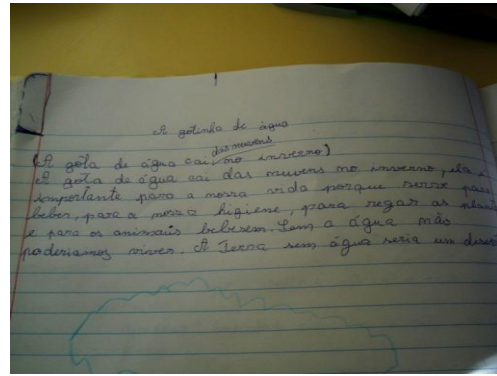 A gotinha de água
das nuvens
(A gôta de água cai no inverno)
A gôta de água cai das nuvens no inverno, ela é
importante para a nossa vida porque serve para
beber, para a nossa higiene, para regar as
e para os animais beberem. Sem a água não
poderiamos viver. A Terra sem água seria um